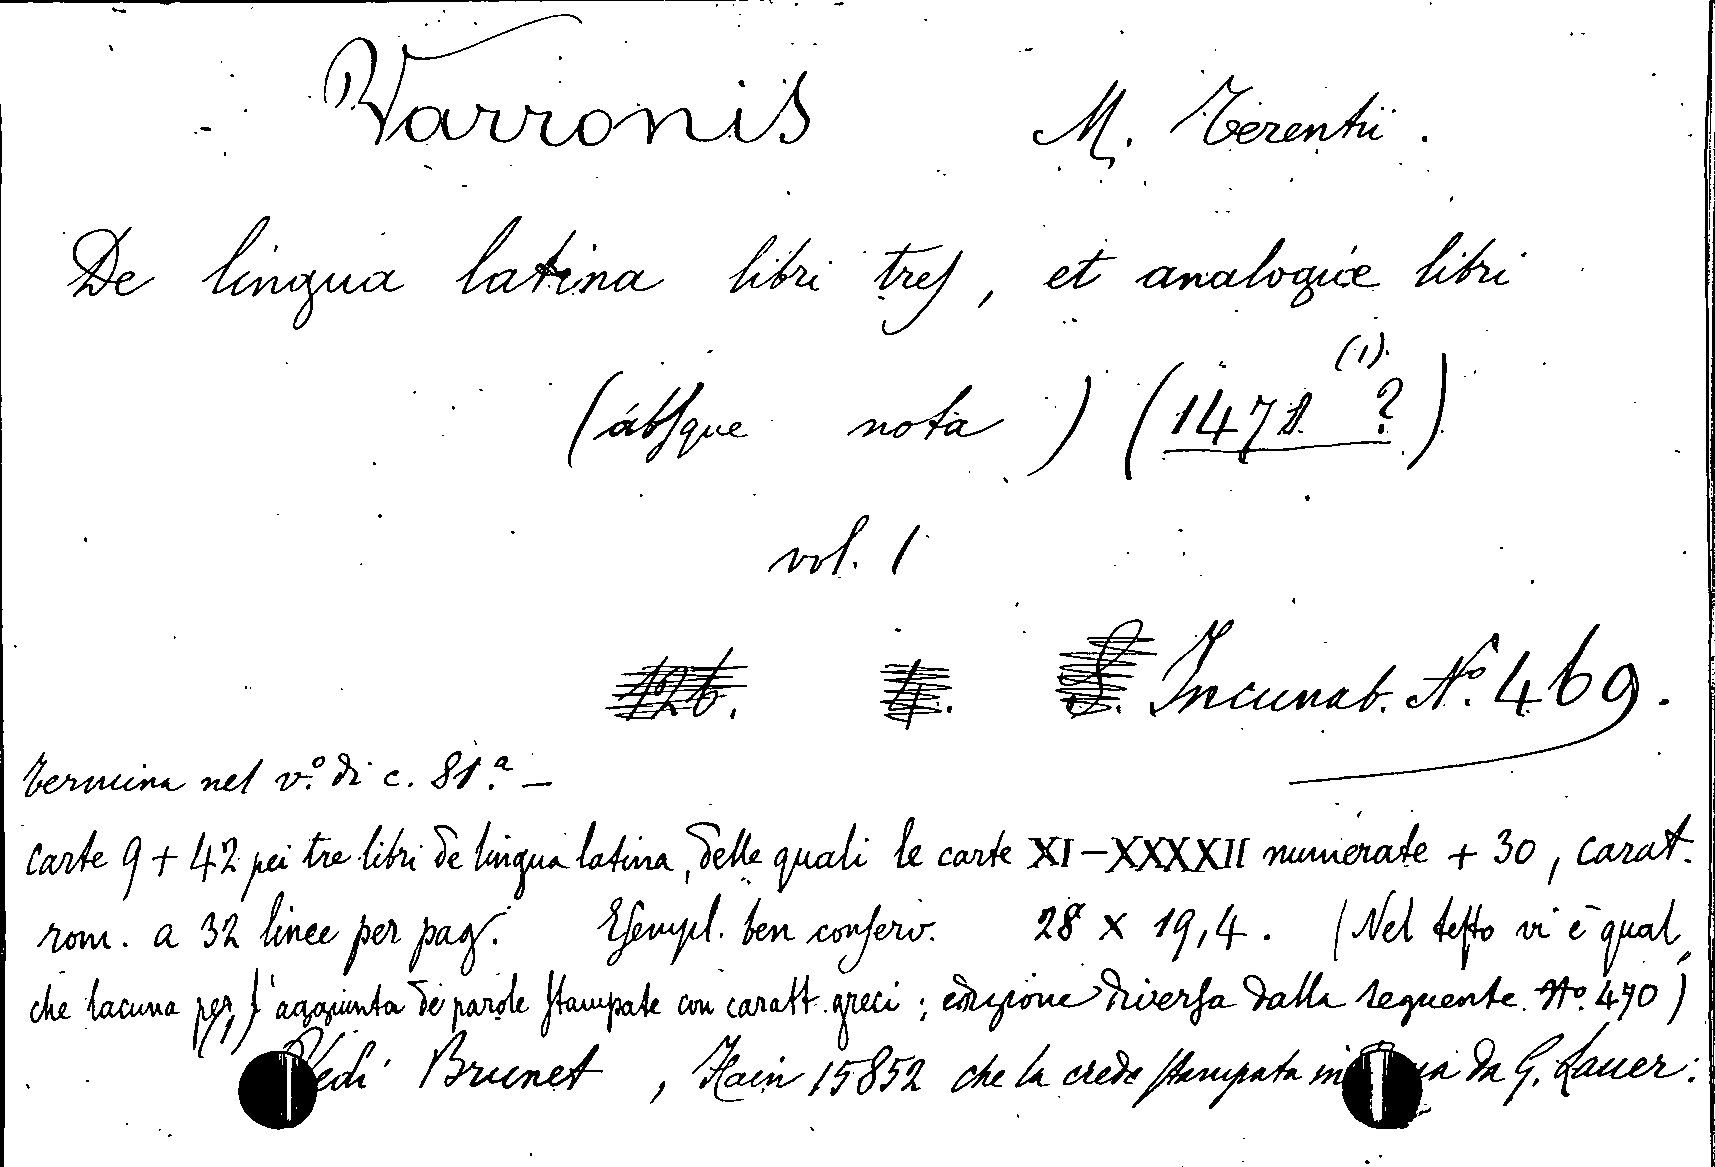 Varronis M. Terentii.
De lingua latina libri tres, et analogiæ libri
(absque nota) (1471 (1). ?)
vol. 1
126. 4. S. Incunab. Nº. 469.
termina nel vº. di c. 81.ª —
carte 9 + 42 pei tre libri de lingua latina, delle quali le carte XI–XXXXII numerate + 30, carat.
rom. a 32 linee per pag. Esempl. ben conserv. 28 x 19,4. (Nel testo vi è qual,
che lacuna per l'aggiunta di parole stampate con caratt. greci; edizione diversa dalla seguente Nº. 470)
(1) Vedi Brunet, Hain 15852 che la crede stampata in da G. Lauer: